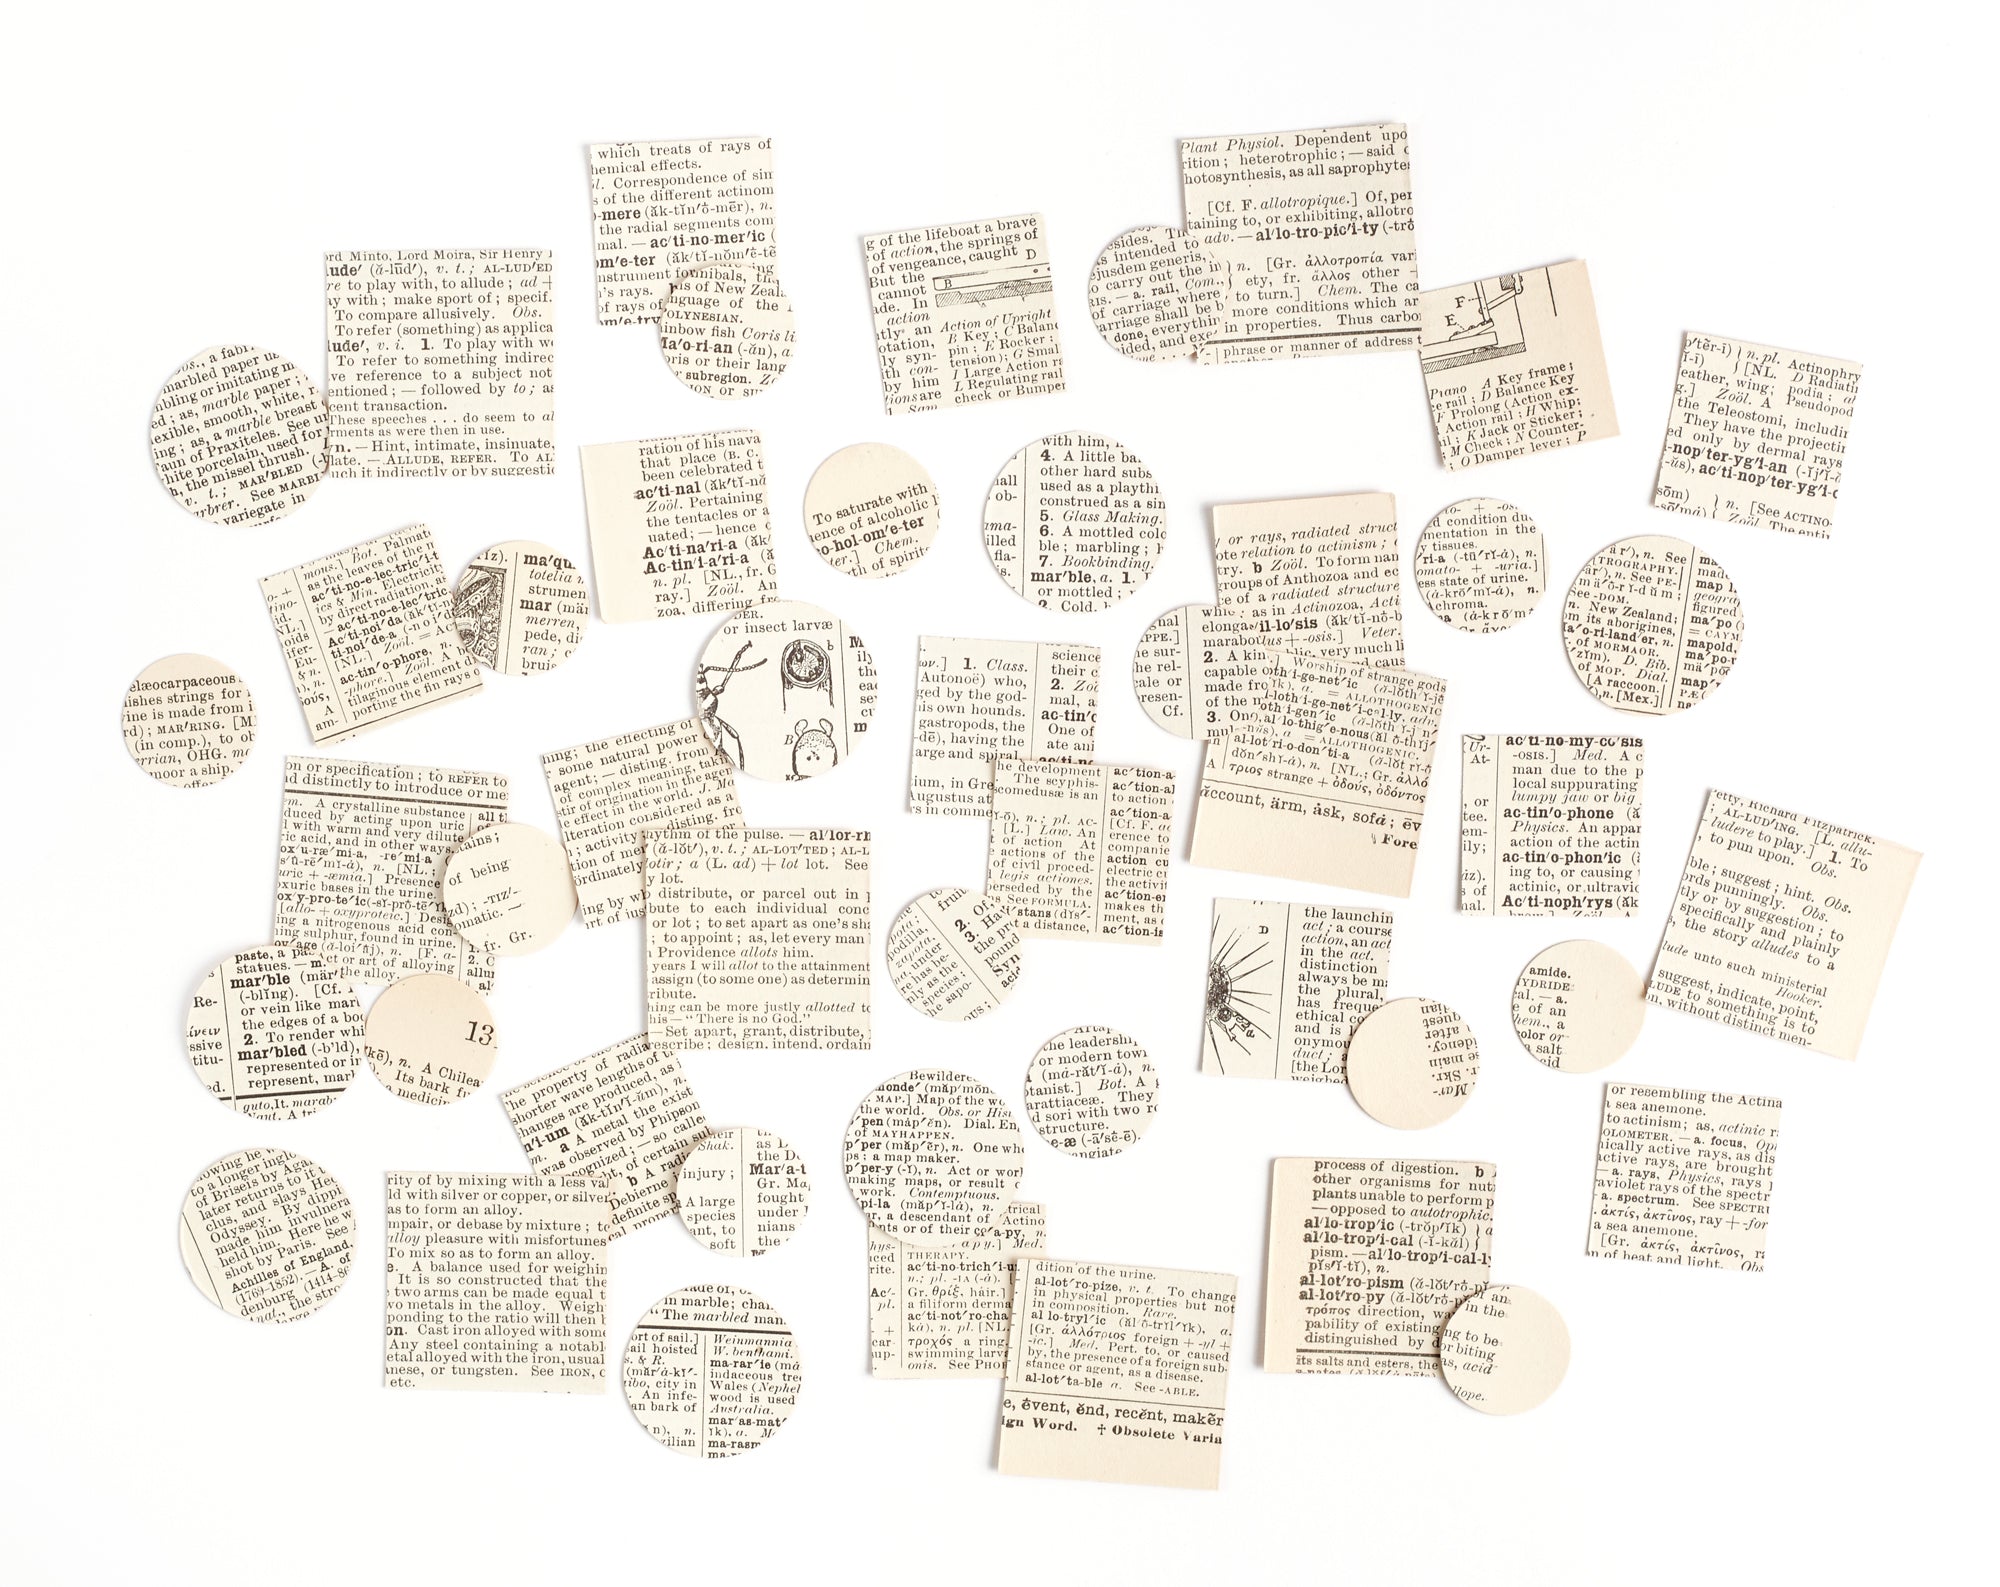 which treats of rays of
hemical effects.
Correspondence of sin
s of the different actinom
-mere (ăk-tĭn′ō-mēr), n.
the radial segments com
mal. — ac′ti-no-mer′ic (
om′e-ter (ăk′tĭ-nŏm′ē-tẽ
nstrument fo
's rays.
rays of
m′e-try
nnibals, th
is of New Zeal
nguage of the
OLYNESIAN.
inbow fish Coris li
Ma′o-ri-an (-ăn), a.
oris or their lang
subregion.
Plant Physiol. Dependent upo
rition; heterotrophic; — said o
hotosynthesis, as all saprophyte
[Cf. F. allotropique.] Of, per
taining to, or exhibiting, allotro
adv. — al′lo-trop′ic′i-ty (-trŏ
n. [Gr. ἀλλοτροπία var
ety, fr. ἄλλος other +
to turn.] Chem. The ca
more conditions which ar
in properties. Thus carbo
phrase or manner of address t
esides. Th
s intended to
ejusdem generis,
o carry out the in
is. — a. rail, Com.
of carriage where
arriage shall be b
done, everythin
ided, and exc
g of the lifeboat a brave
of action, the springs of
of vengeance, caught D
But the
cannot B
ade. In
action
tly an Action of Upright
otation, B Key; C Balanc
ly syn- pin; E Rocker;
th con- tension); G Smal
by him I Large Action r
tions are L Regulating rail
check or Bumper
F
E
Piano A Key frame;
e rail; D Balance Key
F Prolong (Action ex-
Action rail; H Whip;
il; K Jack or Sticker;
M Check; N Counter-
; O Damper lever; P
ord Minto, Lord Moira, Sir Henry
lude′ (ă-lūd′), v. t.; AL-LUD′ED
re to play with, to allude; ad +
ay with; make sport of; specif.
To compare allusively. Obs.
To refer (something) as applica
lude′, v. i. 1. To play with wo
To refer to something indirec
ve reference to a subject not
entioned; — followed by to; as
cent transaction.
These speeches . . . do seem to al
rments as were then in use.
n. — Hint, intimate, insinuate,
late. — ALLUDE, REFER. To AL
uch it indirectly or by suggestio
os., a fabri
marbled paper
mbling or imitating m
ed; as, marble paper;
lexible, smooth, white,
ing; as, a marble breast
aun of Praxiteles. See
hite porcelain, used for
h, the missel thrush.
v. t.; MAR′BLED (-b
rbrer. See MARBL
variegate in
p′tẽr-ĭ) n. pl. Actinophry
[NL. D Radiati
eather, wing; podia; a
g.] Zoöl. A Pseudopod
the Teleostomi, includin
They have the projectin
ed only by dermal rays
i-nop′ter-yg′i-an (-ĭj′ĭ-ă
-ŭs), ac′ti-nop′ter-yg′i-o
sōm) n. [See ACTINO-
ration of his nava
that place (B. C.
been celebrated t
ac′ti-nal (ăk′tĭ-nă
Zoöl. Pertaining
the tentacles or a
uated; — hence
Ac′ti-na′ri-a (ăk′
Ac′tin′i-a′ri-a (ă
n. pl. [NL., fr. G
ray.] Zoöl. An
zoa, differing fr
To saturate with
uence of alcoholic l
o-hol-om′e-ter
ter.] Chem.
th of spirit
with him,
4. A little ba
all other hard subs
ob- used as a playthi
construed as a sin
5. Glass Making.
ma- 6. A mottled colo
illed ble; marbling;
fla- 7. Bookbinding.
is. mar′ble, a. 1.
or mottled;
2. Cold.
mous.] Bot. Palmat
as the leaves of the
ac′ti-no-e-lec′tric′i-t
ics & Min. Electricity
by direct radiation,
— ac′ti-no-e-lec′tric
Ac′ti-noi′da (ăk′tĭ-n
Ac′ti-noi′de-a (-noi′d
[NL.] Zoöl. = Act
ac-tin′o-phore, n.
-phore.] Zoöl. A b
tilaginous element d
porting the fin rays o
ma′qu
totelia
strumen
mar (mär
merren,
pede, di
ran; c
bruis
elæocarpaceous
ishes strings for
ine is made from i
rd); MAR′RING. [M
(in comp.), to ob
errian, OHG. mo
moor a ship.
DER.
or insect larvæ
b
B
M
y or rays, radiated struct
ote relation to actinism;
try. b Zoöl. To form nam
groups of Anthozoa and ec
ce of a radiated structure
as in Actinozoa, Acti
il-lo′sis (ăk′tĭ-nō-b
us + -osis.] Veter.
very much li
and caus
gnal whic
PPE.] elonga
e sur- marabo
he rel- 2. A kin
cale or capable o
resen- made fro
Cf. of the n
3. On
Worship of strange gods
oth′i-ge-net′ic (ă-lŏth′ĭ-jē
ĭk), a. = ALLOTHOGENIC
-loth′i-ge-net′i-cal-ly, adv.
oth′i-gen′ic (ă-lŏth′ĭ-jĕn′
al′lo-thig′e-nous (ăl′ō-thĭj′
-nŭs), a. = ALLOTHOGENIC.
al-lot′ri-o-don′ti-a (ă-lŏt′rĭ-ō
dŏn′shĭ-ă), n. [NL.; Gr. ἀλλό
τριος strange + ὀδούς, ὀδόντος
ăccount, ärm, ȧsk, sofȧ; ēv
Fore
d condition du
mentation in the
y tissues.
ri-a (-tū′rĭ-ȧ), n.
omato- + -uria.]
ess state of urine.
-krō′mĭ-ȧ), n.
Achroma.
är′), n. See
TROGRAPHY.]
fär), n. See PE-
See -DOM.
n. New Zealand;
om its aborigines,
a′o-ri-land′er, n.
of MORMAOR.
D. Bib.
of MOP. Dial.
[A raccoon.
), n. [Mex.]
made
map
geogra
figured
ma′po
= CAYM
mapold.
ma′po-
map′
on or specification; to REFER to
nd distinctly to introduce or me
m. A crystalline substance
duced by acting upon uric
l with warm and very dilute
ic acid, and in other ways.
ox′u-ræ′mi-a, -re′mi-a
[NL.;
uric + -æmia.] Presence
oxuric bases in the urine.
ox′y-pro-te′ic
[allo- + oxyproteic.] Desig
ing a nitrogenous acid con
ing sulphur, found in urine.
oy′age (ă-loi′ăj), n. [F. a-
ct or art of alloying
the alloy.
tains;
of being
zd); -TIZ′-
omatic. —
fr. Gr.
ing; the effecting of
some natural power
agent; — disting. from
of complex meaning, takin
tir of origination in the agen
e effect in the world. J. Ma
lteration considered as a
; activity; — disting. fr
tion of mer
ördinately
ing by w
art of jus
hythm of the pulse. — al′lor-rh
(ă-lŏt′), v. t.; AL-LOT′TED; AL-L
lotir; a (L. ad) + lot lot. See
y lot.
distribute, or parcel out in
bute to each individual conc
or lot; to set apart as one's sh
; to appoint; as, let every man
Providence allots him.
years I will allot to the attainment
assign (to some one) as determin
ribute.
hing can be more justly allotted to
his — "There is no God."
— Set apart, grant, distribute,
escribe; design, intend, ordain
1. Class.
Autonoë) who,
ged by the god-
is own hounds.
gastropods, the
dē), having the
arge and spiral
ium, in Gre
Augustus at
rs in comme
science
their c
2. Zoö
mal, a
ac-tin′o
One of
ate ani
he development
The scyphis-
comedusæ is an
n.; pl. AC-
[L.] Law. An
of action At
actions of the
of civil proced-
legis actiones.
erseded by the
See FORMULA.
stans (dĭs′-
t a distance,
ac′tion-a
to action
ac′tion-a
[Cf. F. ac
erence to
companie
action cu
electric c
the activit
ac′tion-e
makes th
ment, as
ac′tion-is
ac′ti-no-my-co′sis
-osis.] Med. A c
man due to the p
local suppurating
lumpy jaw or big
ac-tin′o-phone (
Physics. An appar
action of the actin
ac-tin′o-phon′ic (
ing to, or causing
actinic, or ultravio
Ac′ti-noph′rys (ăk
Ur-
At-
, or
tee.
em-
ily;
s of
nal
etty, Richard Fitzpatrick.
AL-LUD′ING. [L. allu-
ludere to play.] 1. To
, to pun upon. Obs.
ble; suggest; hint. Obs.
ords punningly. Obs.
tly or by suggestion; to
specifically and plainly
, the story alludes to a
lude unto such ministerial
Hooker.
suggest, indicate, point,
LUDE to something is to
n, without distinct men-
paste, a pa
statues. — m
mar′ble (mär′
(-blĭng). [Cf.
Re- or vein like mar
the edges of a boo
2. To render whi
ssive mar′bled (-b'ld),
titu- represented or i
represent, mar
ed.
guto, It. marab
Naut. A tri
13
kē), n. A Chilea
Its bark f
medicin
pota;
podilla,
zapota.
under
re has be-
nly as the
species;
the sapo-
ous;
fruit
2. Of
3. Hav
the pr
pound
Syn
acid
D
the launchin
act; a course
action, an act
in the act.
distinction
always be m
the plural,
has freque
ethical co
and is
onymou
duct;
[the Lor
weighed
quest
after
idian
gency.
se main
Skr.
Mar-
amide.
YDRIDE
cal. — a.
e of an
hem., a
color or
a salt
cid
the property of radia
shorter wave lengths of t
hanges are produced, as
n′i-um (ăk-tĭn′ĭ-ŭm), n.
m. a A metal the exist
was observed by Phipson
ecognized; — so calle
of certain sul
b A radi
Debierne
definite sp
cal propert
Shak.
injury;
A large
species
ant, to
soft
as D
the D
Mar′a-t
Gr. Ma
fought
under
nians
the
Bewildere
monde′ (măp′mŏn
MAP.] Map of the wo
the world. Obs. or Hist
′pen (măp′ĕn). Dial. En
of MAYHAPPEN.
p′per (măp′ẽr), n. One who
ps; a map maker.
p′per-y (-ĭ), n. Act or work
making maps, or result o
work. Contemptuous.
pi-la (măp′ĭ-lȧ), n.
ar, a descendant of
nts or of their c
the leadership
or modern town
(mȧ-răt′ĭ-ȧ), n.
otanist.] Bot. A g
arattiaceæ. They
d sori with two ro
structure.
e-æ (-ā′sē-ē).
angiate
or resembling the Actina
a sea anemone.
to actinism; as, actinic r
OLOMETER. — a. focus, Opt
nically active rays, as dis
active rays, are brought
— a. rays, Physics, rays
aviolet rays of the spectr
a. spectrum. See SPECTRU
ἀκτίς, ἀκτῖνος, ray + -for
a sea anemone.
[Gr. ἀκτίς, ἀκτῖνος, r
n of heat and light. Obs
owing he w
to a longer inglo
of Briseis by Agam
later returns to it
clus, and slays Hec
Odyssey. By dippi
made him invulnera
held him. Here he w
shot by Paris. See
Achilles of England,
(1769-1852). — A. of
denburg (1414-86
Anat., the stro
rity of by mixing with a less val
ld with silver or copper, or silver
as to form an alloy.
mpair, or debase by mixture; to
alloy pleasure with misfortunes
To mix so as to form an alloy.
e. A balance used for weighin
It is so constructed that the
two arms can be made equal t
wo metals in the alloy. Weigh
ponding to the ratio will then b
on. Cast iron alloyed with some
Any steel containing a notabl
etal alloyed with the iron, usual
anese, or tungsten. See IRON,
etc.
in marble; chan
"The marbled man
ort of sail.]
ail hoisted
s. & R.
(măr′ȧ-kĭ′-
aibo, city in
An infe-
an bark of
n), n.
zilian
Weinmannia
W. benthami.
ma-rar′ie (mȧ
indaceous tree
Wales (Nephel
wood is used
Australia.
mar′as-mat′
ĭk), a. M
ma-rasm
trical
Actino
apy.] Med.
THERAPY.
ac′ti-no-trich′i-u
n.; pl. -IA (-ȧ).
Gr. θρίξ, hair.]
a filiform derma
ac′ti-not′ro-cha
kȧ), n. pl. [NL.
τροχός a ring.
swimming larv
omis. See PHOR
hys-
ced
rite.
Ac′-
pl.
+
car
up-
dition of the urine.
al-lot′ro-pize, v. t. To change
in physical properties but not
in composition. Rare.
al′lo-tryl′ic (ăl′ō-trĭl′ĭk), a.
[Gr. ἀλλότριος foreign + -yl +
-ic.] Med. Pert. to, or caused
by, the presence of a foreign sub-
stance or agent, as a disease.
al-lot′ta-ble a. See -ABLE.
e, ēvent, ĕnd, recĕnt, makẽr
ign Word. † Obsolete Varia
process of digestion. b
other organisms for nut
plants unable to perform p
— opposed to autotrophic.
al′lo-trop′ic (-trŏp′ĭk) a
al′lo-trop′i-cal (-ĭ-kăl)
pism. — al′lo-trop′i-cal-l
pĭs′ĭ-tĭ), n.
al-lot′ro-pism (ă-lŏt′rō-pĭz
al-lot′ro-py (ă-lŏt′rō-p
τρόπος direction, wa
pability of existing
distinguished by d
its salts and esters, the
an
in the
ng to be
orbiting
as, acid
llope.